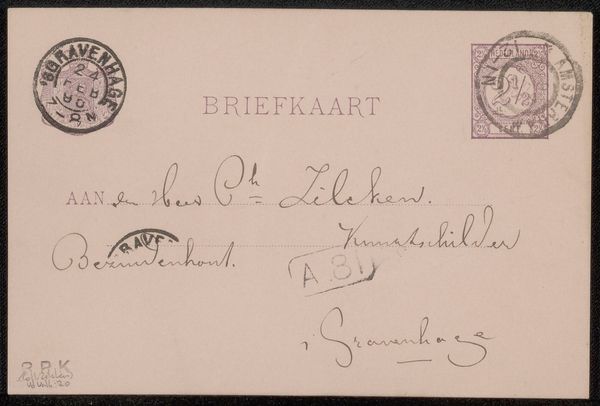 'SGRAVENHAGE
24
FEB
90
7-8N
NEDERLAND
2½
AMSTERDAM
BRIEFKAART
AAN den Heer Ph Zilcken.
Kunstschilder
GRAVE
Bezuidenhout.
A 81
's Gravenhage
R P K